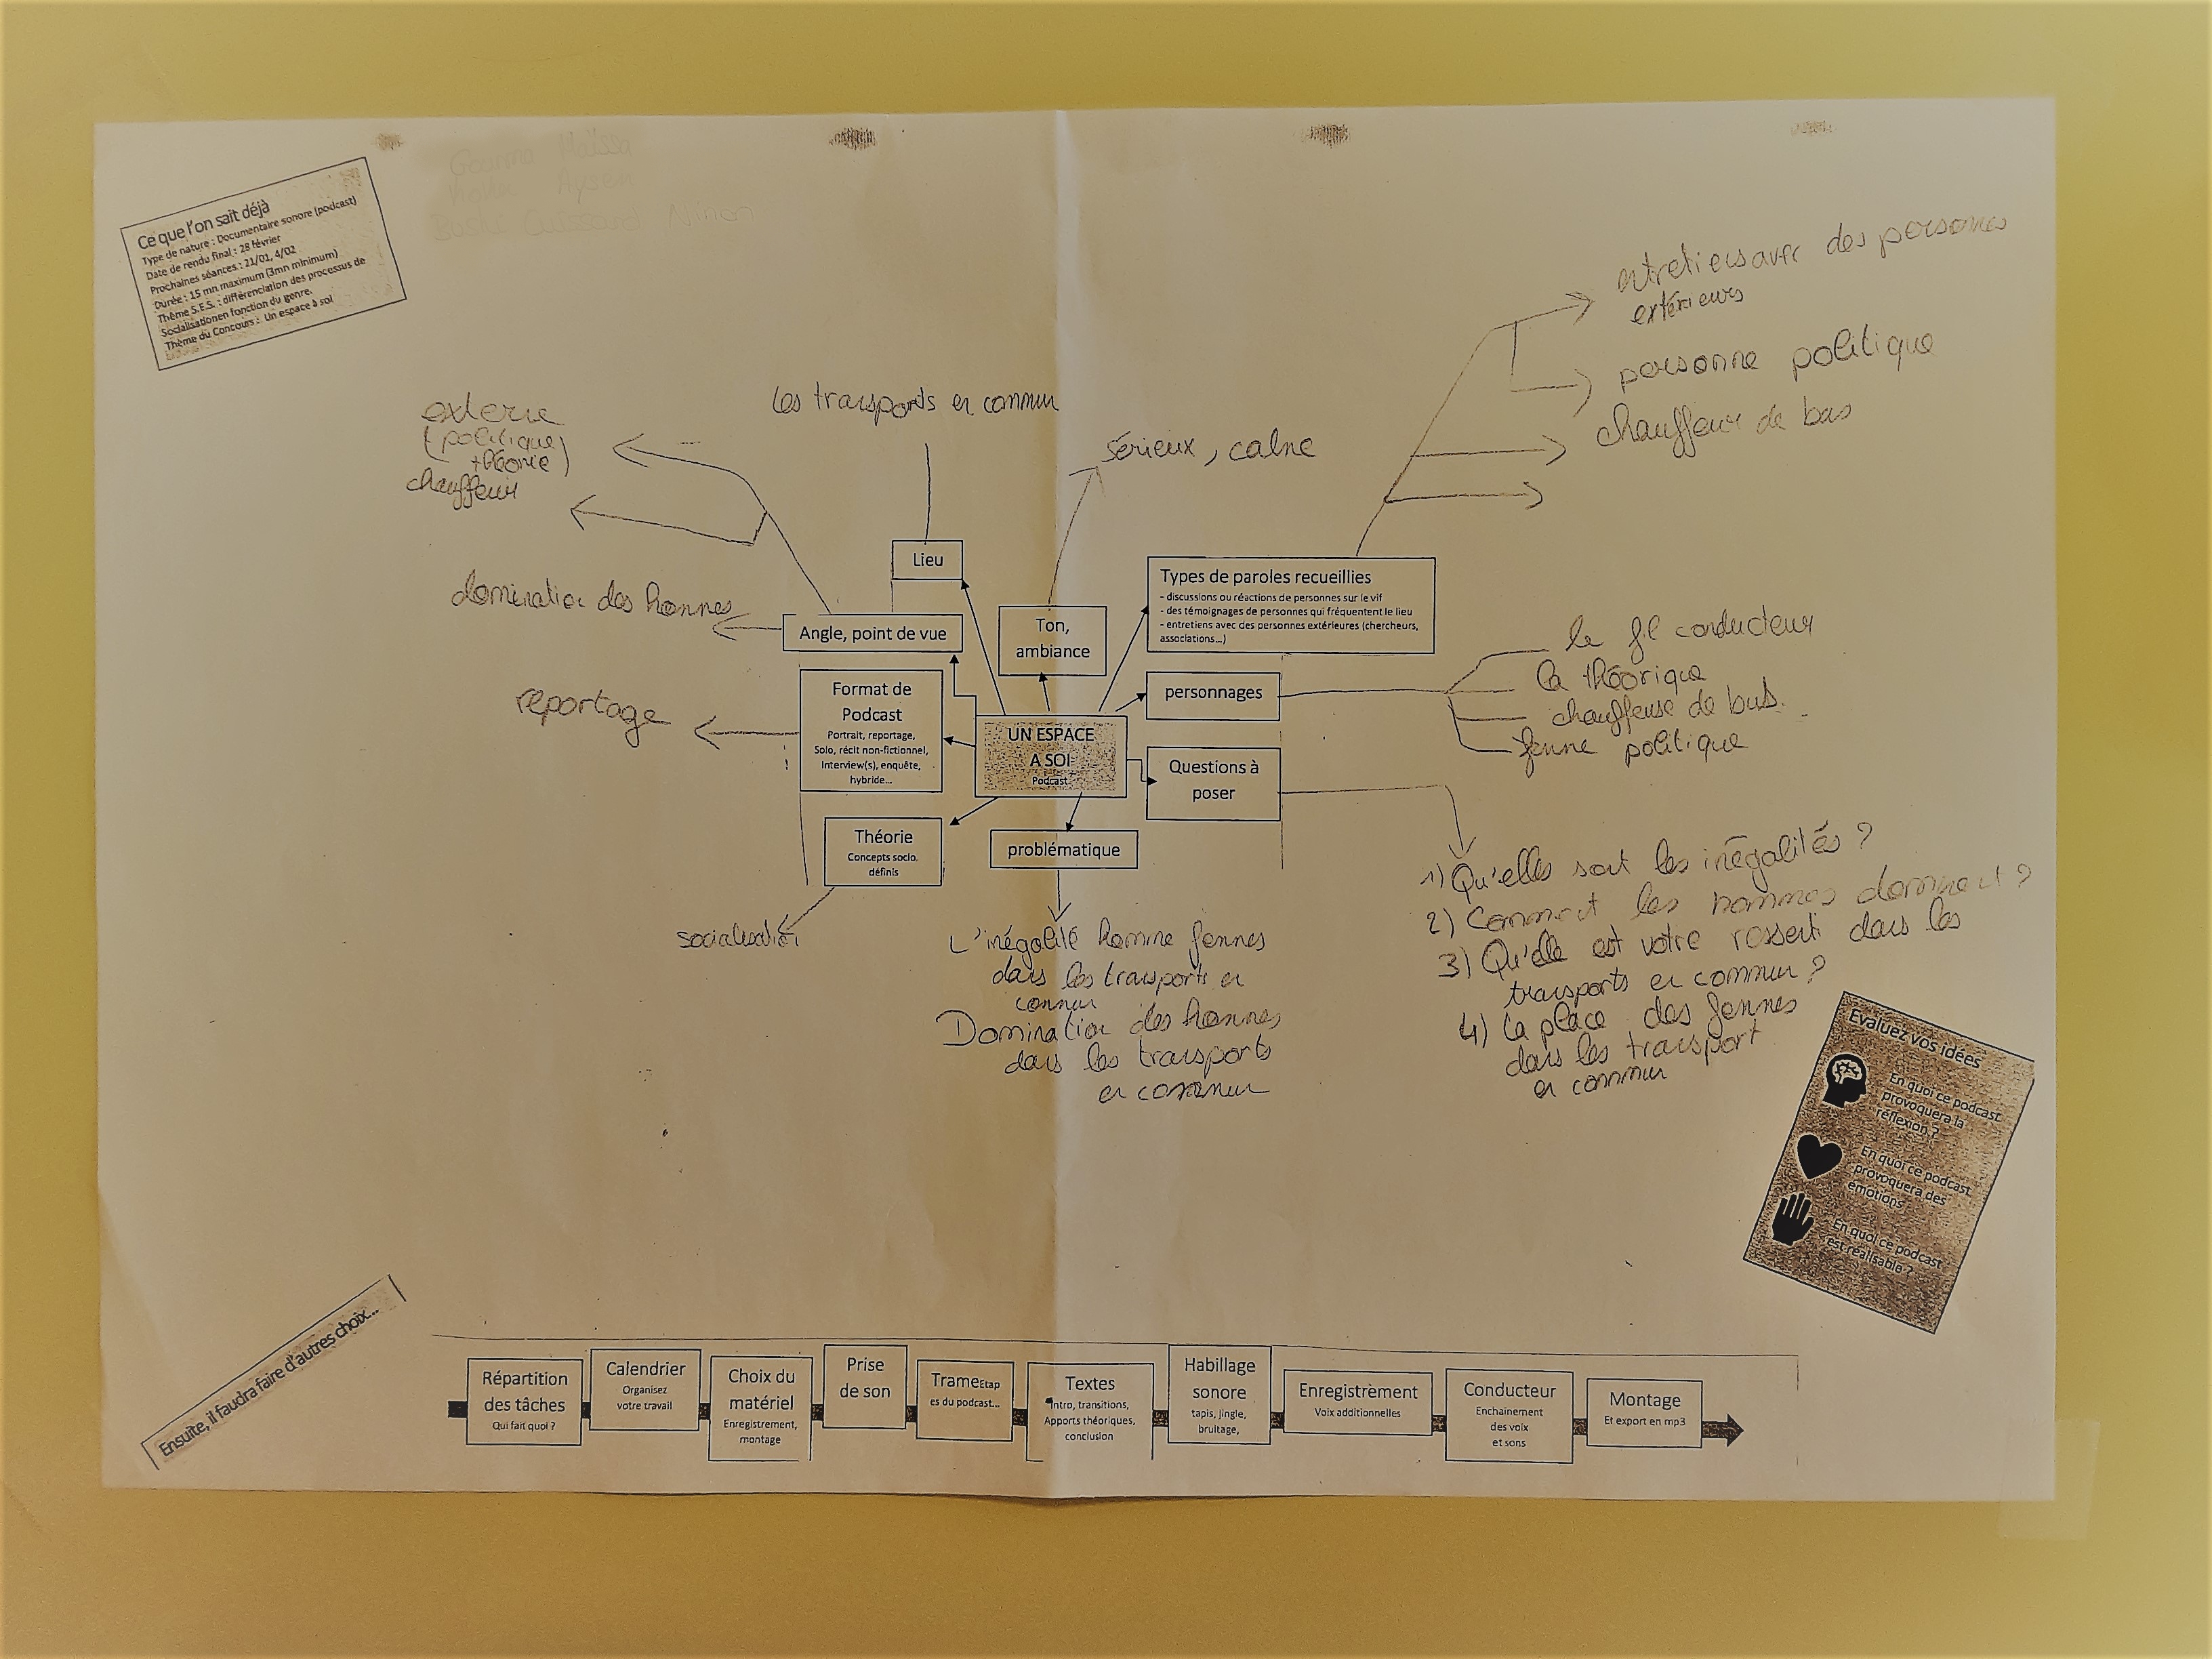 Maïssa
Aysen
Ninon
Ce que l'on sait déjà
Type de nature : Documentaire sonore (podcast)
Date de rendu final : 28 février
Prochaines séances : 21/01, 4/02
Durée : 15 mn maximum (3mn minimum)
Thème S.E.S. : différenciation des processus de
Socialisationen fonction du genre.
Thème du Concours : Un espace à soi
entretiens avec des personnes
extérieurs
personne politique
chauffeur de bus
les transports en commun
externe
(politique)
+ théorie)
chauffeur
sérieux, calme
Lieu
domination des hommes
Angle, point de vue
Ton,
ambiance
Types de paroles recueillies
- discussions ou réactions de personnes sur le vif
- des témoignages de personnes qui fréquentent le lieu
- entretiens avec des personnes extérieures (chercheurs,
associations...)
reportage
Format de
Podcast
Portrait, reportage,
Solo, récit non-fictionnel,
Interview(s), enquête,
hybride...
UN ESPACE
A SOI
Podcast
personnages
le fil conducteur
la théorique
chauffeuse de bus.
femme politique
Questions à
poser
Théorie
Concepts socio.
définis
problématique
socialisation
L'inégalité homme femmes
dans les transports en
commun
Domination des hommes
dans les transports
en commun
1) Qu'elles sont les inégalités ?
2) Comment les hommes dominent ?
3) Qu'elle est votre ressenti dans les
transports en commun ?
4) La place des femmes
dans les transport
en commun
Evaluez vos idées
En quoi ce podcast
provoquera la
réflexion ?
En quoi ce podcast
provoquera des
émotions
En quoi ce podcast
est réalisable ?
Ensuite, il faudra faire d'autres choix...
Répartition
des tâches
Qui fait quoi ?
Calendrier
Organisez
votre travail
Choix du
matériel
Enregistrement,
montage
Prise
de son
TrameEtap
es du podcast...
Textes
Intro, transitions,
Apports théoriques,
conclusion
Habillage
sonore
tapis, jingle,
bruitage,
Enregistrement
Voix additionnelles
Conducteur
Enchainement
des voix
et sons
Montage
Et export en mp3